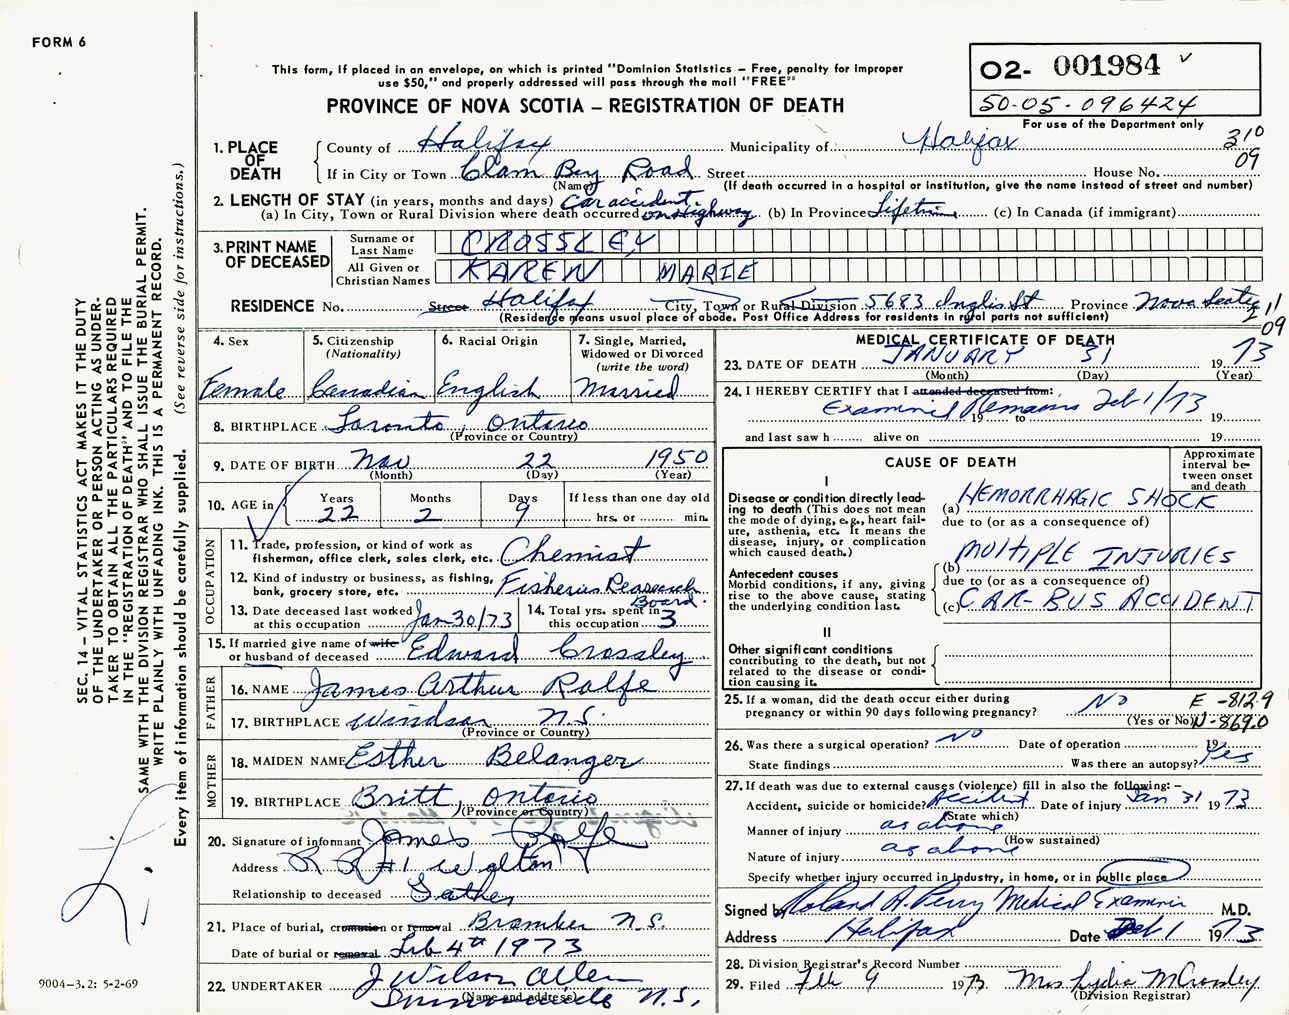 FORM 6
This form, if placed in an envelope, on which is printed "Dominion Statistics – Free, penalty for improper
use $50," and properly addressed will pass through the mail "FREE"
O2- 001984
50-05-096424
For use of the Department only
PROVINCE OF NOVA SCOTIA – REGISTRATION OF DEATH
310
09
1. PLACE OF DEATH
County of Halifax Municipality of Halifax
If in City or Town Clam Bay Road Street House No.
(Name) (If death occurred in a hospital or institution, give the name instead of street and number)
2. LENGTH OF STAY (in years, months and days) Car accident
(a) In City, Town or Rural Division where death occurred on Highway (b) In Province Lifetime (c) In Canada (if immigrant)
3. PRINT NAME OF DECEASED
Surname or Last Name CROSSLEY
All Given or Christian Names KAREN MARIE
RESIDENCE No. Street Halifax City, Town or Rural Division 5683 Inglis St Province Nova Scotia
(Residence means usual place of abode. Post Office Address for residents in rural parts not sufficient)
211
09
4. Sex
Female
5. Citizenship
(Nationality)
Canadian
6. Racial Origin
English
7. Single, Married,
Widowed or Divorced
(write the word)
Married
8. BIRTHPLACE Toronto, Ontario
(Province or Country)
9. DATE OF BIRTH Nov 22 1950
(Month) (Day) (Year)
10. AGE in
Years Months Days If less than one day old
22 2 9 hrs. or min.
OCCUPATION
11. Trade, profession, or kind of work as
fisherman, office clerk, sales clerk, etc. Chemist
12. Kind of industry or business, as fishing,
bank, grocery store, etc. Fisheries Research Board.
13. Date deceased last worked
at this occupation Jan 30/73
14. Total yrs. spent in
this occupation 3
15. If married give name of wife
or husband of deceased Edward Crossley
FATHER
16. NAME James Arthur Rolfe
17. BIRTHPLACE Windsor N.S.
(Province or Country)
MOTHER
18. MAIDEN NAME Esther Belanger
19. BIRTHPLACE Britt, Ontario
(Province or Country)
20. Signature of informant James Rolfe
Address R R #1 Walton
Relationship to deceased Father
21. Place of burial, cremation or removal Bramber N.S.
Date of burial or removal Feb 4th 1973
22. UNDERTAKER J Wilson Allen
(Name and address) N.S.
MEDICAL CERTIFICATE OF DEATH
23. DATE OF DEATH JANUARY 31 1973
(Month) (Day) (Year)
24. I HEREBY CERTIFY that I attended deceased from:
Examined Remains Feb 1/73
19 to 19
and last saw h alive on 19
CAUSE OF DEATH
Approximate
interval be-
tween onset
and death
I
Disease or condition directly lead-
ing to death (This does not mean
the mode of dying, e.g., heart fail-
ure, asthenia, etc. It means the
disease, injury, or complication
which caused death.)
(a) HEMORRHAGIC SHOCK
due to (or as a consequence of)
Antecedent causes
Morbid conditions, if any, giving
rise to the above cause, stating
the underlying condition last.
(b) MULTIPLE INJURIES
due to (or as a consequence of)
(c) CAR-BUS ACCIDENT
II
Other significant conditions
contributing to the death, but not
related to the disease or condi-
tion causing it.
25. If a woman, did the death occur either during
pregnancy or within 90 days following pregnancy? No
(Yes or No)
E-812.9
N-869.0
26. Was there a surgical operation? No Date of operation 19
State findings Was there an autopsy? Yes
27. If death was due to external causes (violence) fill in also the following:–
Accident, suicide or homicide? Accident Date of injury Jan 31 1973
(State which)
Manner of injury as above
(How sustained)
Nature of injury as above
Specify whether injury occurred in industry, in home, or in public place
Signed by Roland A. Perry Medical Examiner M.D.
Address Halifax Date Feb 1 1973
28. Division Registrar's Record Number
29. Filed Feb 9 1973 Mrs Lydia M Crossley
(Division Registrar)
SEC. 14 – VITAL STATISTICS ACT MAKES IT THE DUTY
OF THE UNDERTAKER OR PERSON ACTING AS UNDER-
TAKER TO OBTAIN ALL THE PARTICULARS REQUIRED
IN THE "REGISTRATION OF DEATH" AND TO FILE THE
SAME WITH THE DIVISION REGISTRAR WHO SHALL ISSUE THE BURIAL PERMIT.
WRITE PLAINLY WITH UNFADING INK. THIS IS A PERMANENT RECORD.
Every item of information should be carefully supplied. (See reverse side for instructions.)
9004-3.2: 5-2-69